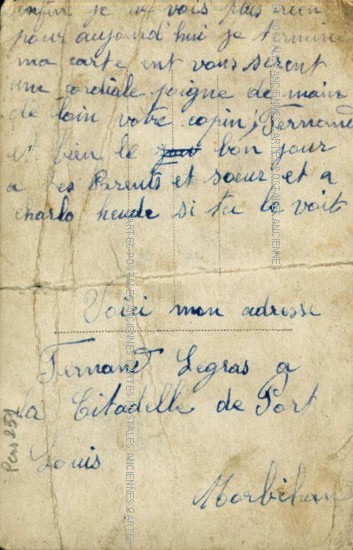 enfin je ne vois plus rien
pour aujourd'hui je termine
ma carte ent vous serent
une cordiale poigne de main
de loin votre copin, Fernand
bien le jour bon jour
a tes Parents et soeur et a
Charlo si tu le voit
Voici mon adresse
Fernand Legras a
la Citadelle de Port
Louis
Morbihan
CARTES POSTALES ANCIENNES